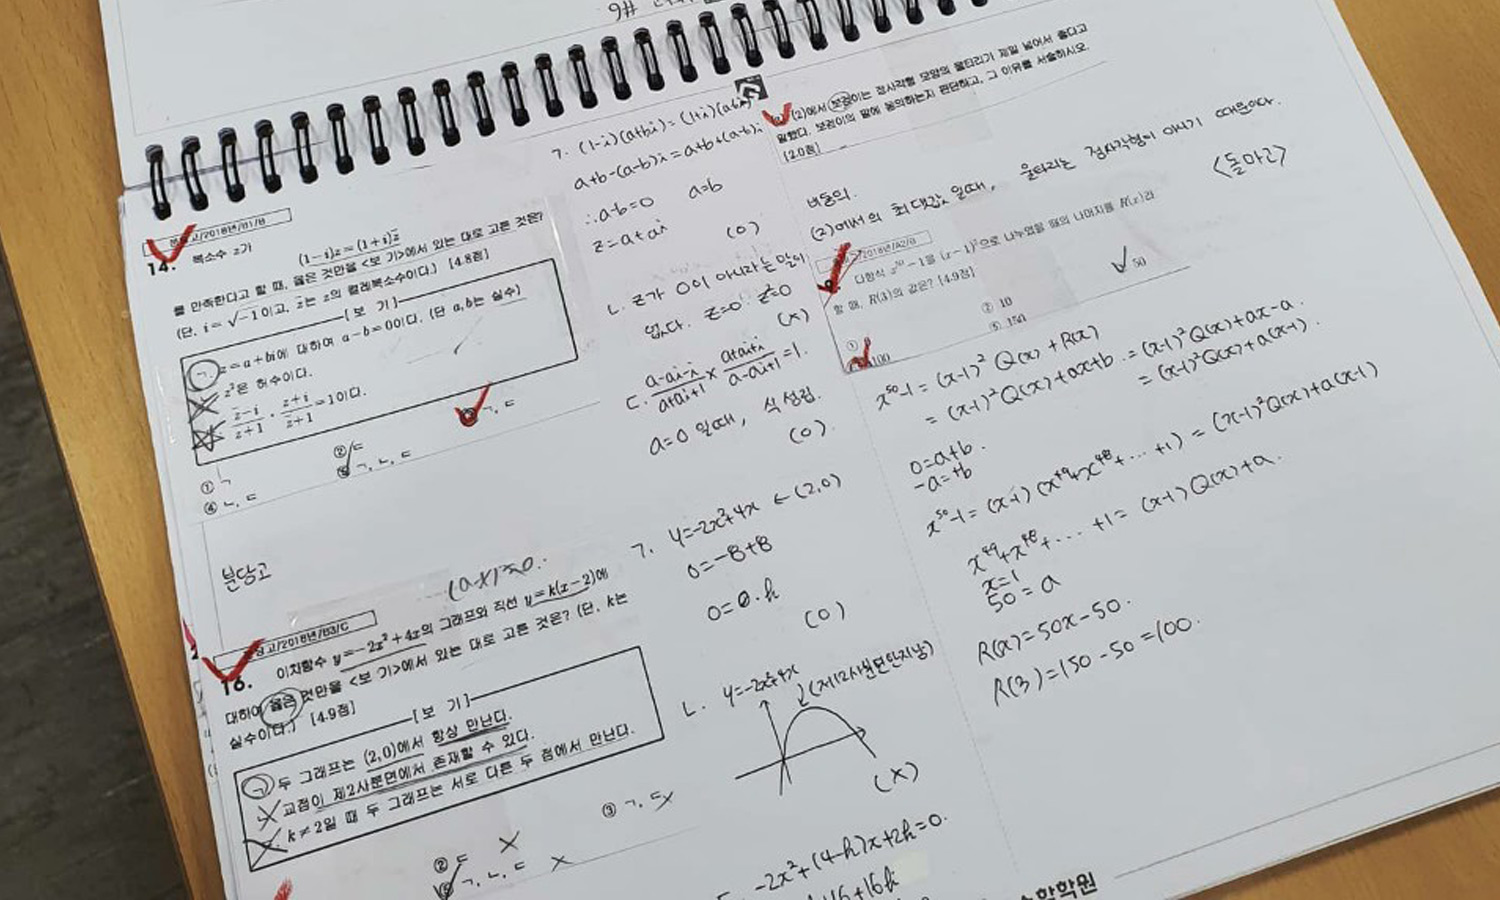 14. 복소수 z가
(1-i)z=(1+i)z̄
를 만족한다고 할 때, 옳은 것만을 <보 기>에서 있는 대로 고른 것은?
(단, i=√-1이고, z̄는 z의 켤레복소수이다.) [4.8점]
[보 기]
ㄱ. z=a+bi에 대하여 a-b=0이다. (단 a,b는 실수)
z²은 허수이다.
=1이다.
① ㄱ
② ㄷ
ㄱ, ㄷ
④ ㄴ, ㄷ
⑤ ㄱ, ㄴ, ㄷ
분당고
/2018년/B3/C
16. 이차함수 y=-2x²+4x의 그래프와 직선 y=k(x-2)에
대하여 옳은 것만을 <보 기>에서 있는 대로 고른 것은? (단, k는
실수이다.) [4.9점]
[보 기]
ㄱ 두 그래프는 (2,0)에서 항상 만난다.
교점이 제2사분면에서 존재할 수 있다.
k≠2일 때 두 그래프는 서로 다른 두 점에서 만난다.
② ㄷ
③ ㄱ, ㄷ
⑤ ㄱ, ㄴ, ㄷ
ㄱ. (1-i)(a+bi)=(1+i)(a-bi)
a+b-(a-b)i=a+b+(a-b)i
∴a-b=0 a=b
z=a+ai
(O)
ㄴ. z가 0이 아니라는 말이
없다. z=0 z²=0
(X)
ㄷ. (a-ai-i)/(a+ai+1) × (a+ai+i)/(a-ai+1)=1.
a=0 일때, 식 성립.
(O)
ㄱ. y=-2x²+4x ← (2,0)
0=-8+8
0=0·k
(O)
ㄴ. y=-2x²+4x
(제2사분면안지남)
(X)
-2x²+(4-k)x+2k=0.
(2)에서 보검이는 정사각형 모양의 울타리가 제일 넓어서 좋다고
말했다. 보검이의 말에 동의하는지 판단하고, 그 이유를 서술하시오.
[2.0점]
비동의.
(2)에서의 최댓값 일때, 울타리는 정사각형이 아니기 때문이다.
<돌마고>
/2018년/A2/B
다항식 x⁵⁰-1을 (x-1)²으로 나누었을 때의 나머지를 R(x)라
할 때, R(3)의 값은? [4.9점]
①
② 10
50
100
⑤ 150
x⁵⁰-1=(x-1)²Q(x)+R(x)
=(x-1)²Q(x)+ax+b.=(x-1)²Q(x)+ax-a.
=(x-1)²Q(x)+a(x-1).
0=a+b.
-a=+b
x⁵⁰-1=(x-1)(x⁴⁹+x⁴⁸+...+1)=(x-1)²Q(x)+a(x-1)
x⁴⁹+x⁴⁸+...+1=(x-1)Q(x)+a.
x=1
50=a
R(x)=50x-50.
R(3)=150-50=100.
수학학원